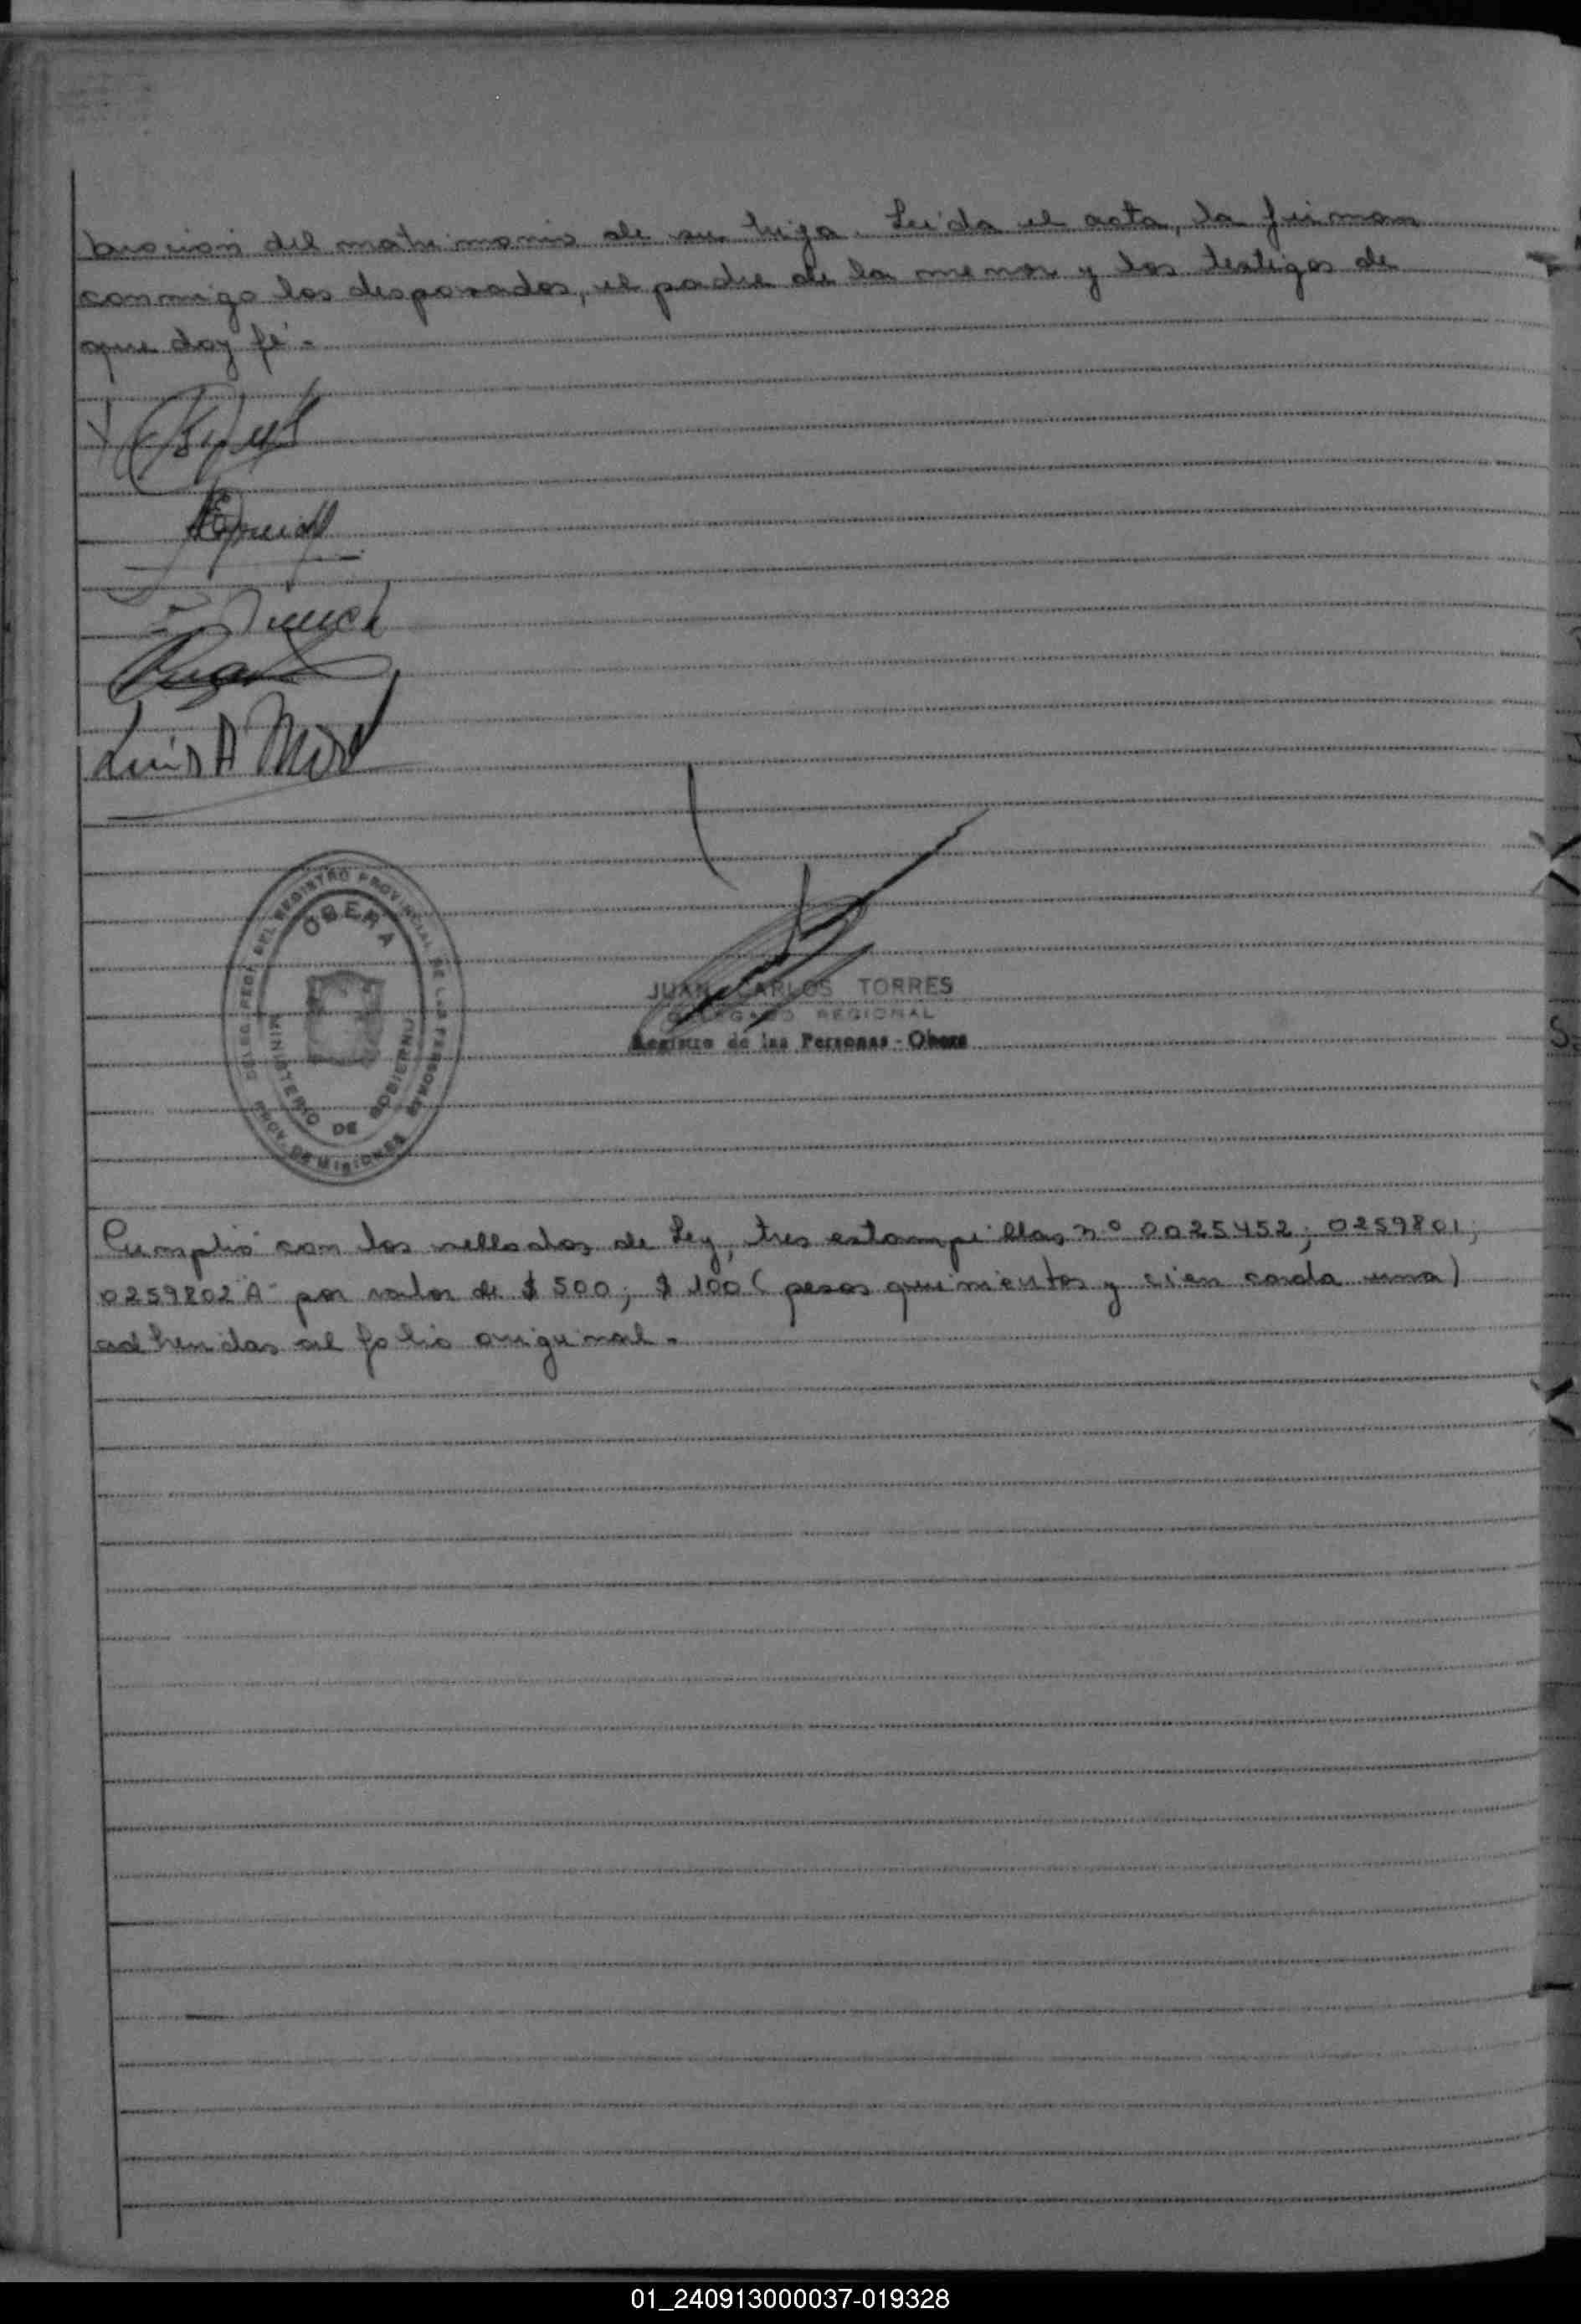 bración del matrimonio de su hija. Leída el acta, la firman
conmigo los desposados, el padre de la menor y los testigos de
que doy fé.-
Luis A
OBERA
DELEG. DEL REGISTRO PROVINCIAL DE LAS PERSONAS
MINISTERIO DE GOBIERNO
PROV. DE MISIONES
JUAN CARLOS TORRES
DELEGADO REGIONAL
Registro de las Personas - Obera
Cumplió con los sellados de Ley, tres estampillas nº 0025452; 0259801;
0259802 A- por valor de $ 500; $ 100 (pesos quinientos y cien cada una)
adheridas al folio original.-
01_240913000037-019328